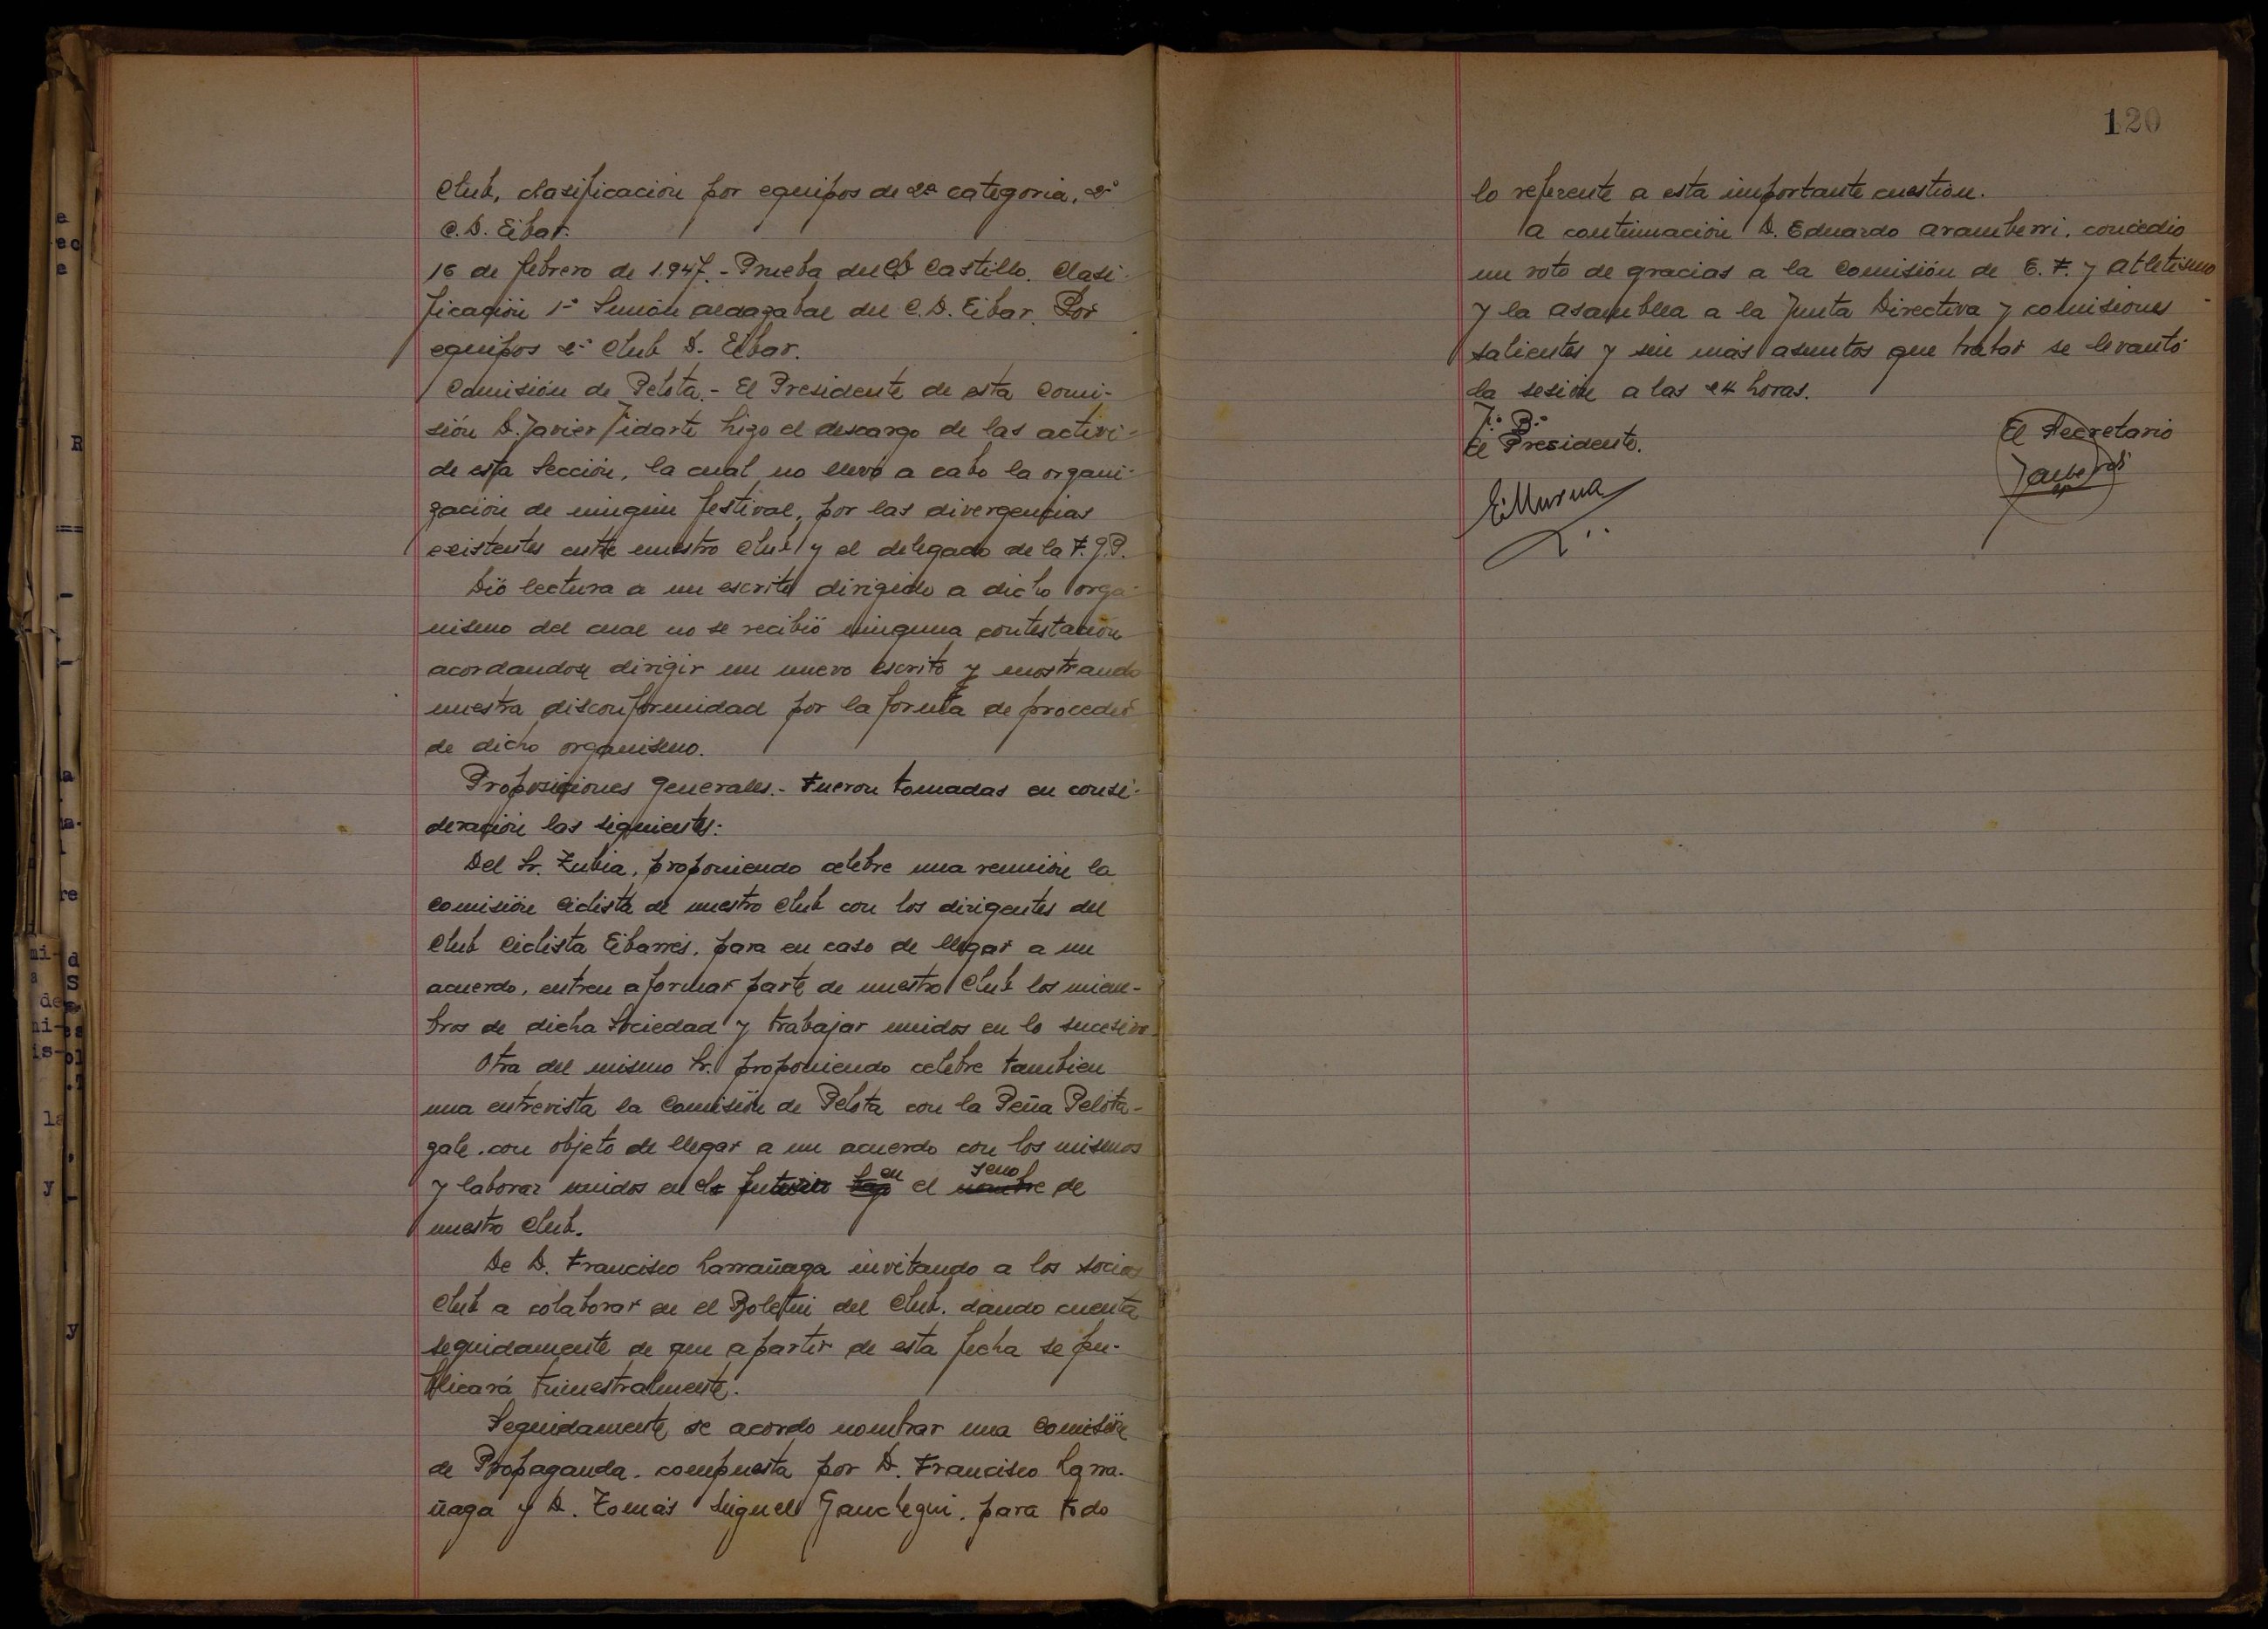 Club, clasificación por equipos de 2ª categoria, 2º
C.D. Eibar.
16 de febrero de 1.947.- Prueba del Castillo. Clasi-
ficación 1º Simón Aldazabal del C.D. Eibar. Por
equipos 2º Club D. Eibar.
Comisión de Pelota.- El Presidente de esta Comi-
sión D. Javier Vidarte hizo el descargo de las activi-
de esta Sección, la cual no llevó a cabo la organi-
zación de ningún festival, por las divergencias
existentes entre nuestro Club y el delegado de la F.G.P.
Dió lectura a un escrito dirigido a dicho orga-
nismo del cual no se recibió ninguna contestación
acordandose dirigir un nuevo escrito y mostrando
nuestra disconformidad por la forma de proceder
de dicho organismo.
Proposiciones Generales.- Fueron tomadas en consi-
deración las siguientes:
Del Sr. Zubia, proponiendo celebre una reunión la
Comisión Ciclista de nuestro Club con los dirigentes del
Club Ciclista Eibarrés, para en caso de llegar a un
acuerdo, entren a formar parte de nuestro Club los miem-
bros de dicha Sociedad y trabajar unidos en lo sucesivo.
Otra del mismo Sr. proponiendo celebre tambien
una entrevista la Comisión de Pelota con la Peña Pelota-
zale, con objeto de llegar a un acuerdo con los mismos
y laborar unidos en el futuro bajo en el nombre seno de
nuestro Club.
De D. Francisco Larrañaga invitando a los socios
Club a colaborar en el Boletin del Club, dando cuenta
seguidamente de que a partir de esta fecha se pu-
blicará trimestralmente.
Seguidamente se acordo nombrar una Comisión
de Propaganda, compuesta por D. Francisco Larra-
ñaga y D. Tomás Miguel Ganchegui, para todo
120
lo referente a esta importante cuestión.
A continuación D. Eduardo Aramberri, concedio
un voto de gracias a la Comisión de E. F. y Atletismo
y la Asamblea a la Junta Directiva y comisiones
salientes y sin más asuntos que tratar se levantó
la sesión a las 24 horas.
Vº Bº
El Presidente.
El Secretario